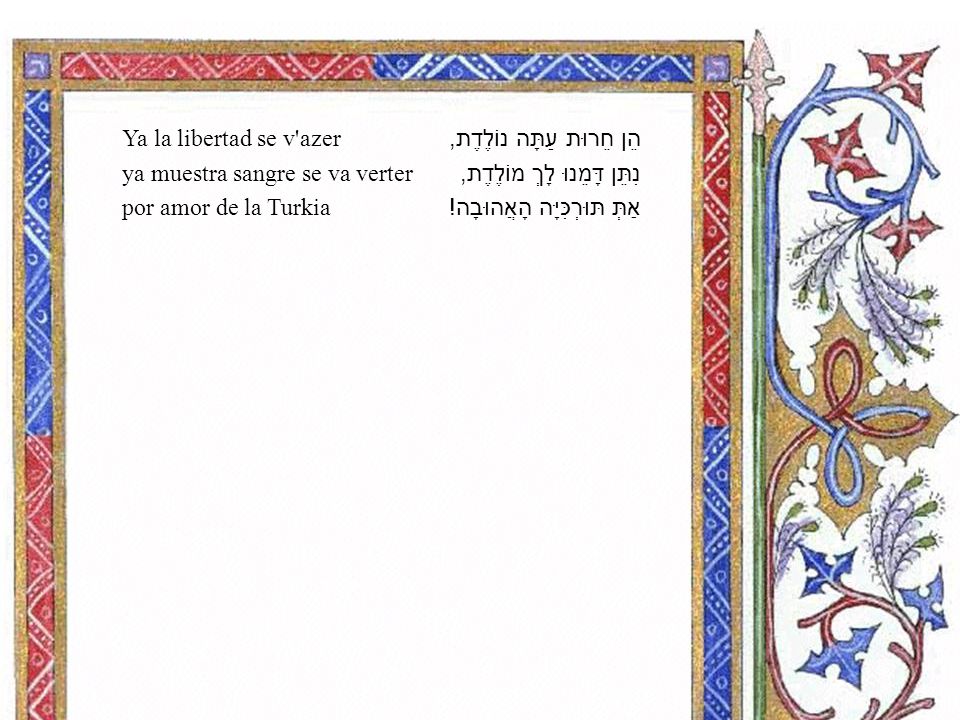 Ya la libertad se v'azer הֵן חֵרוּת עַתָּה נוֹלֶדֶת,
ya muestra sangre se va verter נִתֵּן דָּמֵנוּ לָךְ מוֹלֶדֶת,
por amor de la Turkia אַתְּ תּוּרְכִּיָּה הָאֲהוּבָה!